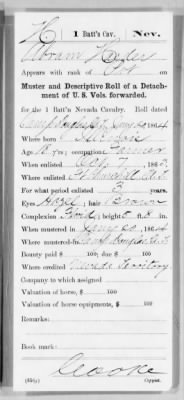 H | 1 Batt'n Cav. | Nev.
Abram
Appears with rank of Pvt
Muster and Descriptive Roll of a Detachment of U. S. Vols. forwarded.
for the 1 Batt'n Nevada Cavalry. Roll dated
Camp Douglas U.T. 1864
Where born
Age 18 y'rs; occupation Farmer
When enlisted Oct. 7, 1863.
Where enlisted
For what period enlisted 3 years.
Eyes Hazel; hair Brown
Complexion; height 5 ft. 8 in.
When mustered in 20, 1864
Where mustered in Camp Douglas U.T.
Bounty paid $ 100; due $ 100
Where credited Nevada Territory
Company to which assigned
Valuation of horse, $ 100
Valuation of horse equipments, $ 100
Remarks:
Book mark:
(359g)
Copyist.